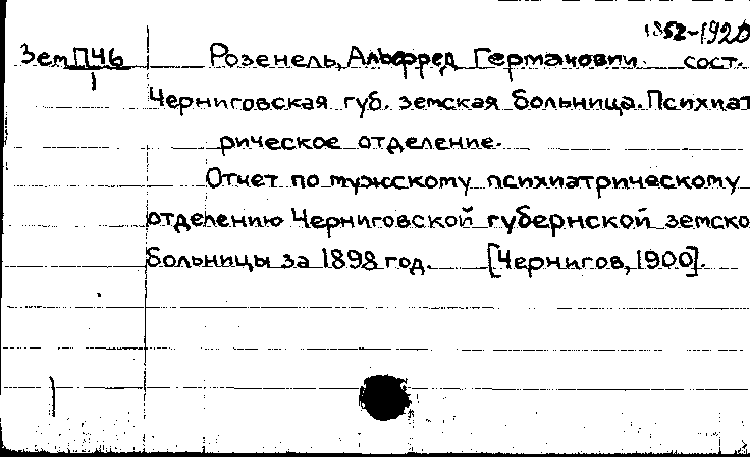 1852-1920
ЗемПЧ6 Розенель, Альфред Германович. сост.
1
Черниговская губ. земская больница. Психиат
рическое отделение.
Отчет по мужскому психиатрическому
отделению Черниговской губернской земско
больницы за 1898 год. [Чернигов, 1900].